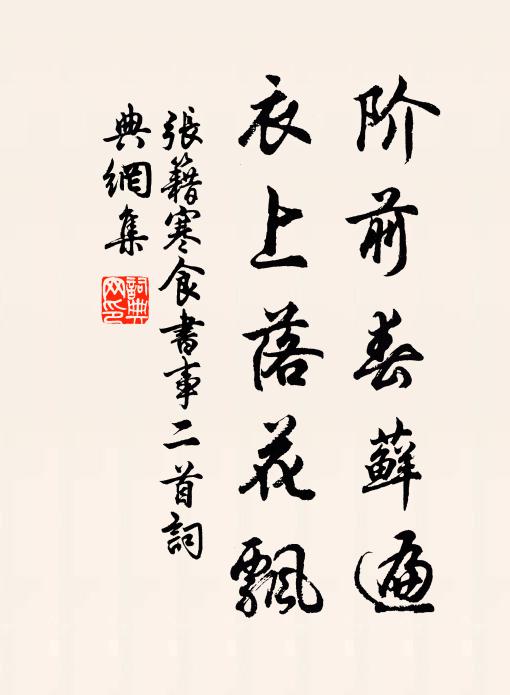 阶前春蘚遍
衣上落花飄
張籍寒食書事二首詞
典網集
詞典
网印